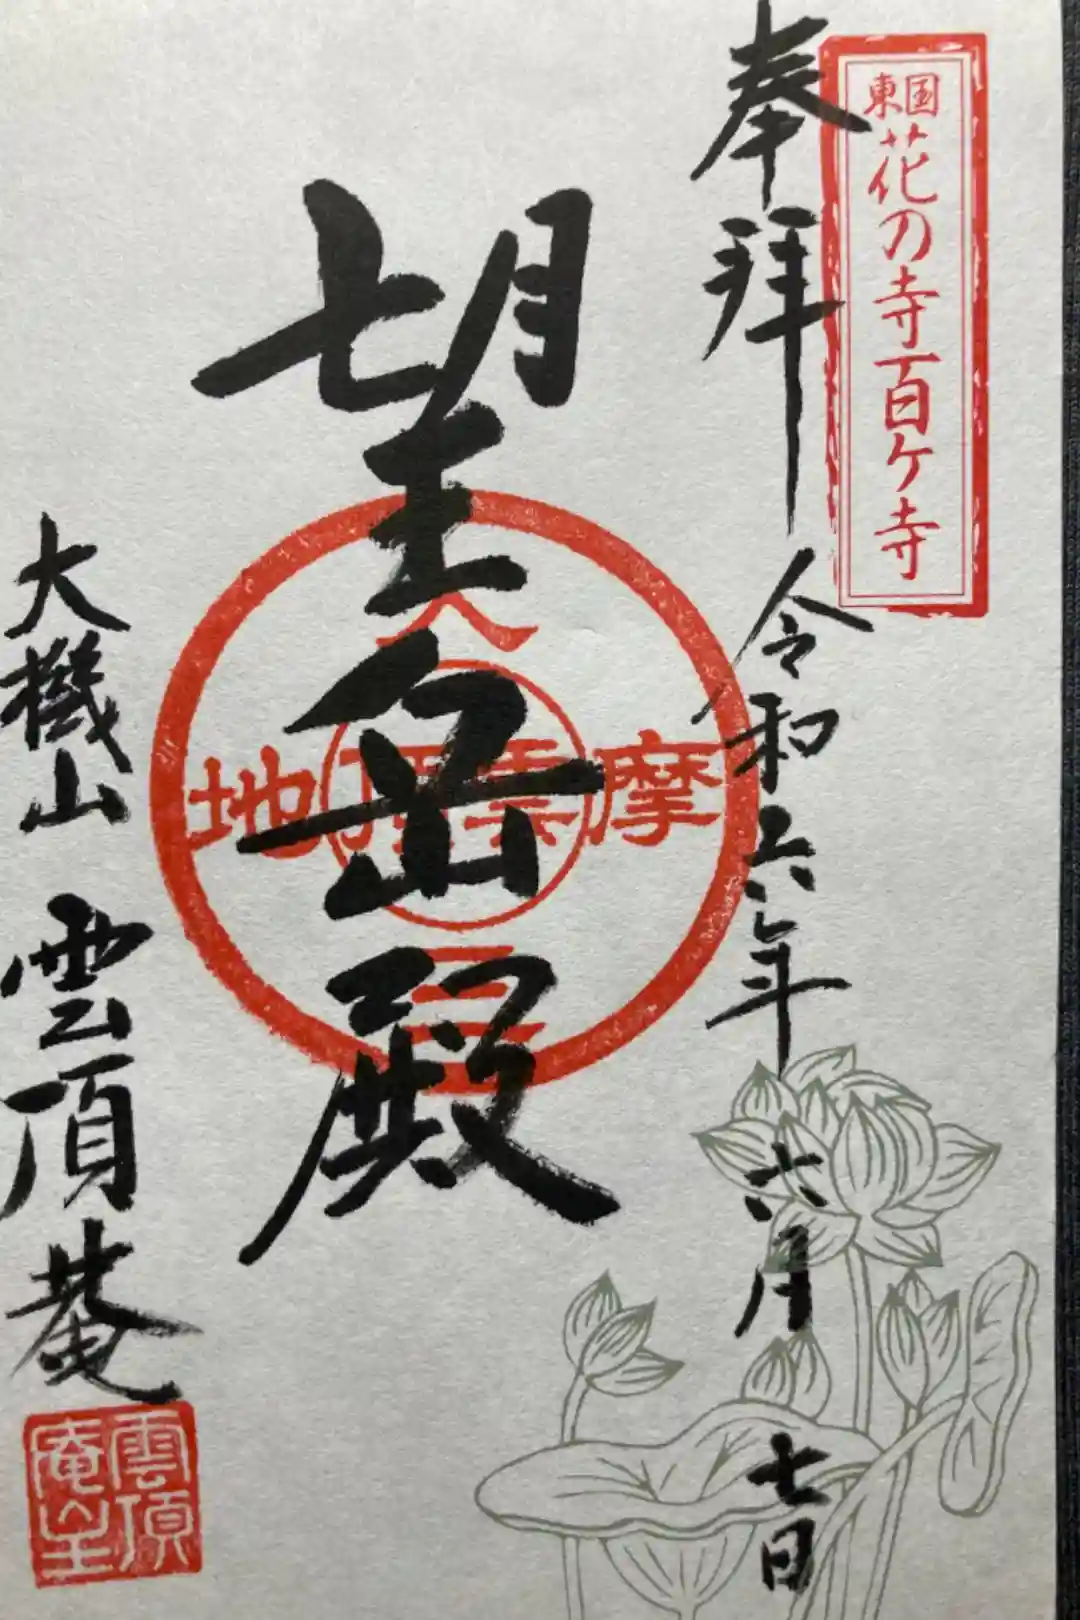 東国
花の寺百ケ寺
奉拝
令和六年
六月
七日
望岳殿
摩雲頂地
大機山
雲頂菴
雲頂
庵主